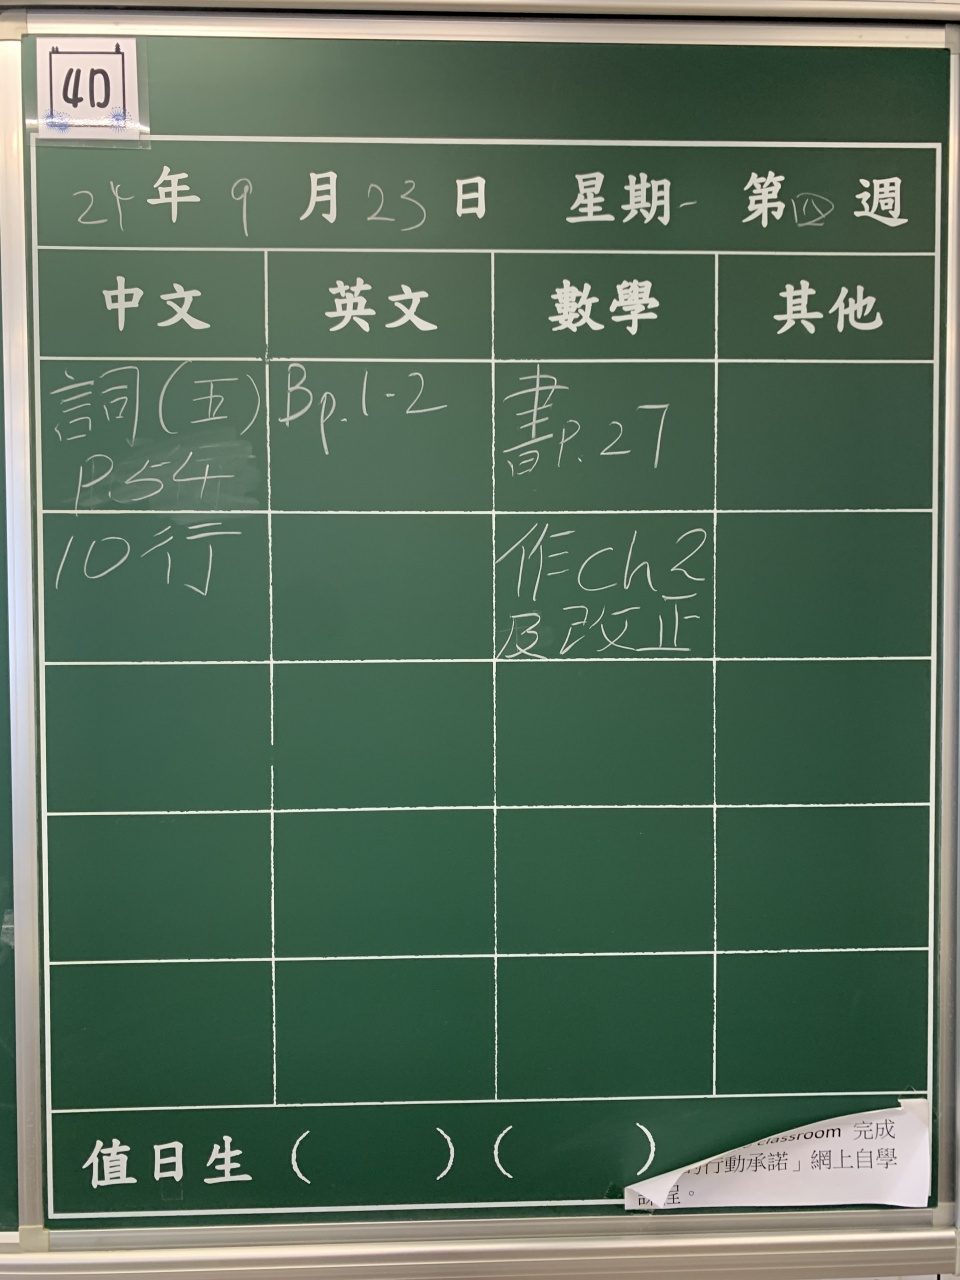 4D
24年9月23日 星期一 第四週
中文 英文 數學 其他
詞(五) Bp.1-2 書P.27
P.54
10行 作ch2
及改正
值日生( )( )
classroom 完成
行動承諾」網上自學
程。